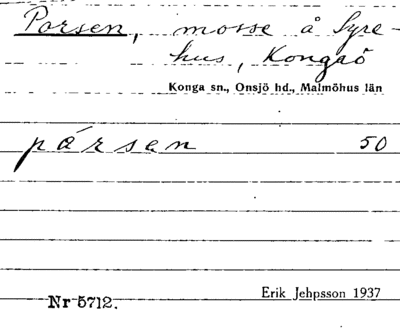 Porsen, mosse å Syre-
hus, Kongaö
Konga sn., Onsjö hd., Malmöhus län
pårsen 50
Nr 5712. Erik Jehpsson 1937